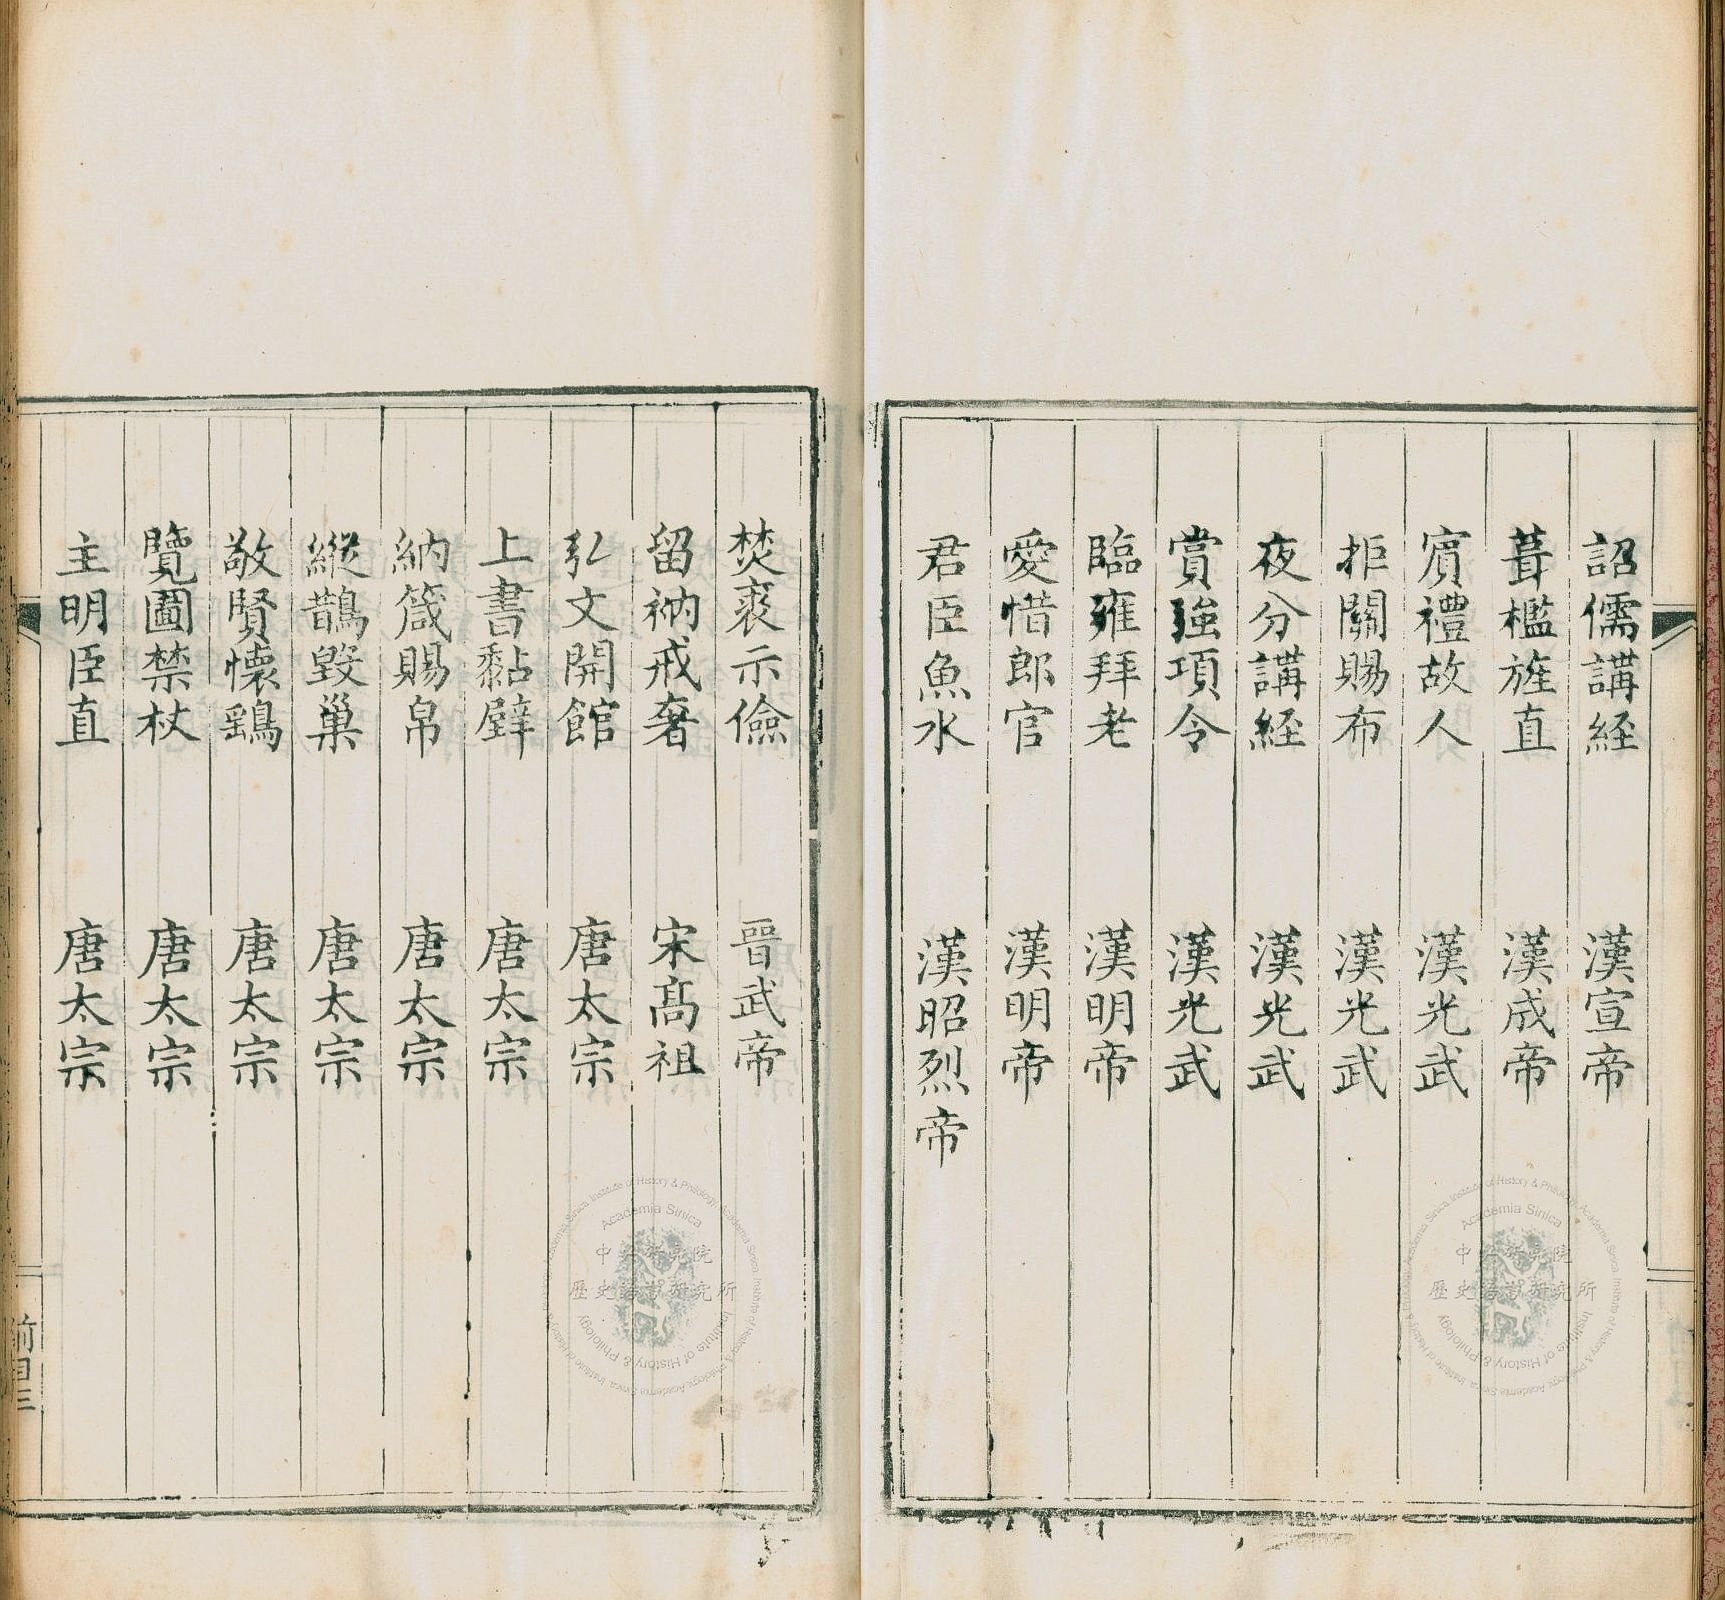 詔儒講経　漢宣帝
葺檻旌直　漢成帝
賔禮故人　漢光武
拒關賜布　漢光武
夜分講経　漢光武
賞強項令　漢光武
臨雍拜老　漢明帝
愛惜郎官　漢明帝
君臣魚水　漢昭烈帝
焚裘示儉　晉武帝
留衲戒奢　宋髙祖
弘文開館　唐太宗
上書黏壁　唐太宗
納箴賜帛　唐太宗
縱鵲毀巢　唐太宗
敬賢懷鷂　唐太宗
覽圖禁杖　唐太宗
主明臣直　唐太宗
前目三
中央研究院
歷史語言研究所
Academia Sinica
Institute of History & Philology
中央研究院
歷史語言研究所
Academia Sinica
Institute of History & Philology